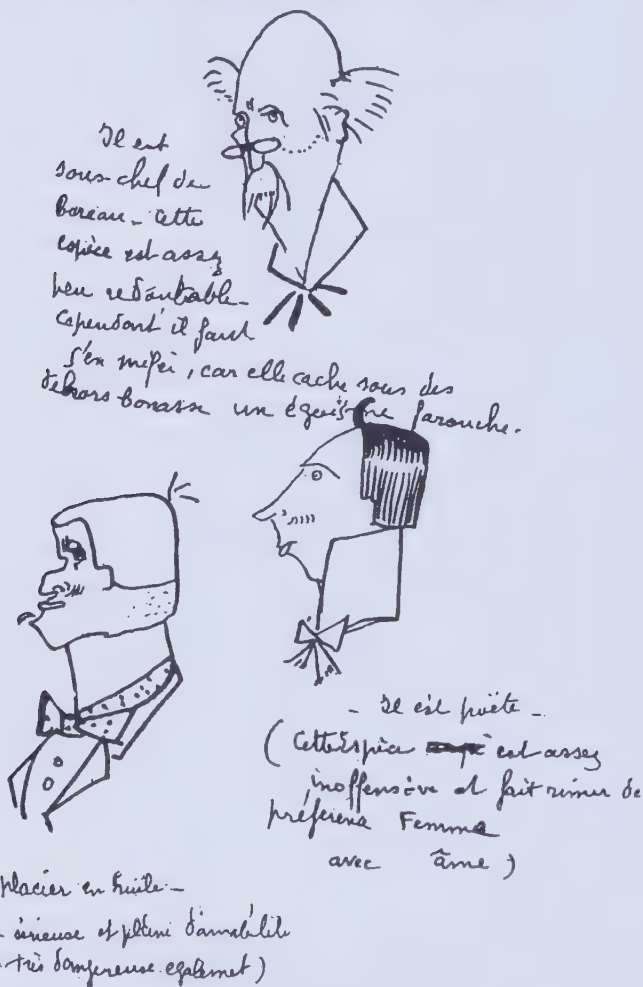 Il est
sous-chef de
Bureau - cette
espèce est assez
peu redoutable -
cependant il faut
s'en mefier, car elle cache sous des
dehors bonasse un égoïsme farouche.
- Il est poëte -
(Cette Espèce est assez
inoffensive et fait rimer de
préférence Femme
avec âme)
placier en huile -
serieuse et pleine d'amabilité
très dangereuse egalement)